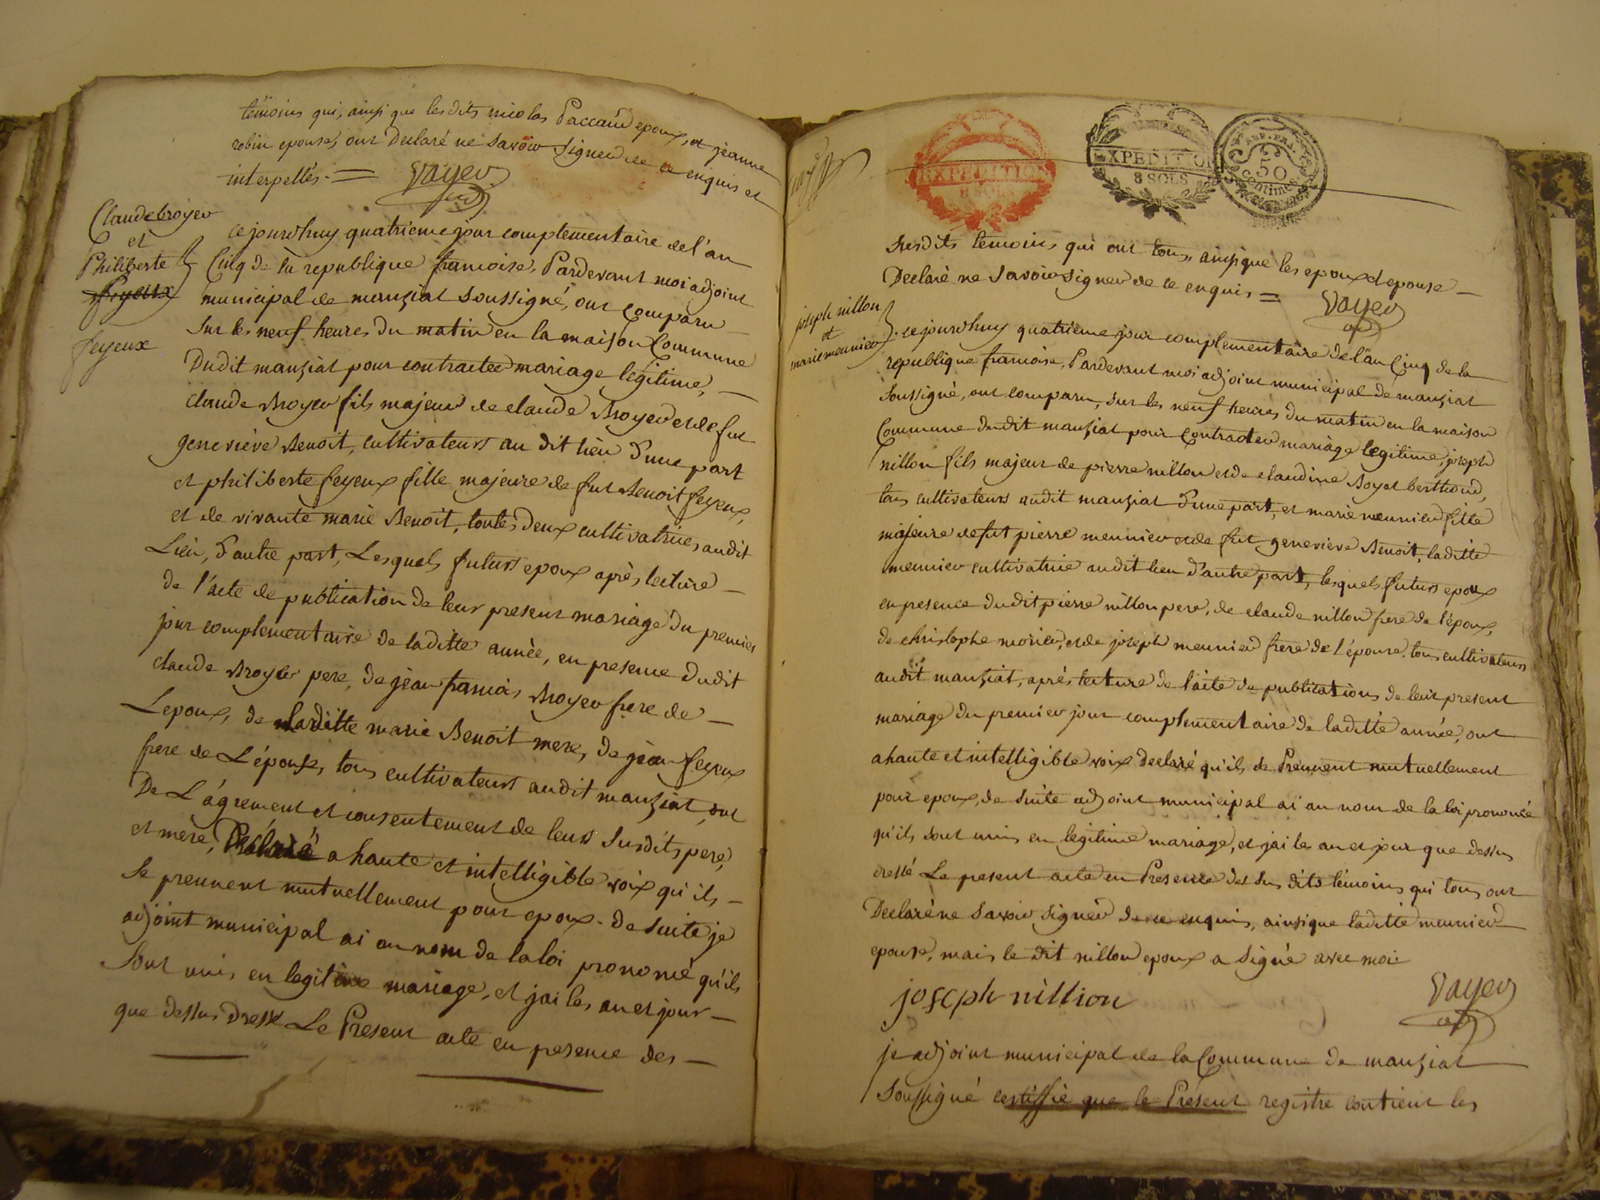 témoins qui, ainsi que lesdits nicolas Paccaud epoux, et jeanne
robin epouse, ont Declaré ne savoir signer de ce enquis et
interpellés. =
Voyer
adj
Claude broyer
et
Philiberte
feyeux
feyeux
cejourd'huy quatrieme jour complementaire de l'an
Cinq de la republique francoise, Pardevant moi adjoint
municipal de manziat soussigné, ont comparu
sur les neuf heures du matin en la maison Commune
Dudit manziat pour contracter mariage legitime,
claude Broyer fils majeur de claude Broyer et de fue
geneviève Benoit, cultivateurs au dit lieu d'une part
et philiberte feyeux fille majeure de fut Benoit feyeux,
et de vivante marie Benoit, toutes deux cultivatrices audit
Lieu, d'autre part, Lesquels futurs epoux après lecture
de l'acte de publication de leur present mariage du premier
jour complementaire de laditte année, en presence dudit
claude Broyer pere, de jean francois Broyer frere de
Lepoux, de laditte marie Benoit mere, de jean feyeux
frere de L'épouse, tous cultivateurs audit manziat, ont
De L'agrement et consentement de leurs susdits pere,
et mère, Declaré a haute et intelligible voix qu'ils
se prennent mutuellement pour epoux. de suite je
adjoint municipal ai au nom de la loi prononcé qu'ils
sont unis en legitime mariage, et jai les an et jour
que dessus dressé Le Present acte en presence des
EXPEDITION
8 SOLS
EXPEDITION
8 SOLS
REP. FRA.
50
Centimes
susdits temoins qui ont tous, ainsi que les epoux et epouse
Declaré ne savoir signer de ce enquis =
Voyer
adj
joseph nillon
et
marie meunier
cejourd'huy quatrieme jour complementaire de l'an Cinq de la
republique francoise, Pardevant moi adjoint municipal de manziat
soussigné, ont comparu, sur les neuf heures du matin en la maison
Commune dudit manziat pour contracter mariage legitime, joseph
nillon fils majeur de pierre nillon et de claudine Boyat berthoud,
tous cultivateurs audit manziat d'une part, et marie meunier fille
majeure de fut pierre meunier et de fue geneviève Benoit, laditte
meunier cultivatrice audit lieu d'autre part, lesquels futurs epoux
en presence dudit pierre nillon pere, de claude nillon frere de l'époux,
de christophe morier, et de joseph meunier frere de l'épouse. tous cultivateurs
audit manziat, après lecture de l'acte de publications de leur present
mariage du premier jour complementaire de laditte année, ont
a haute et intelligible voix declaré qu'ils se Prennent mutuellement
pour epoux, de suite adjoint municipal ai au nom de la loi prononcé
qu'ils sont unis en legitime mariage, et jai les an et jour que dessus
dressé Le present acte en Presence des sus dits témoins qui tous ont
Declaré ne savoir signer de ce enquis, ainsi que laditte meunier
epouse, mais le dit nillon epoux a signé avec moi
joseph nillion
Voyer
adj
je adjoint municipal de la Commune de manziat
soussigné certiffie que le Présent registre contient les